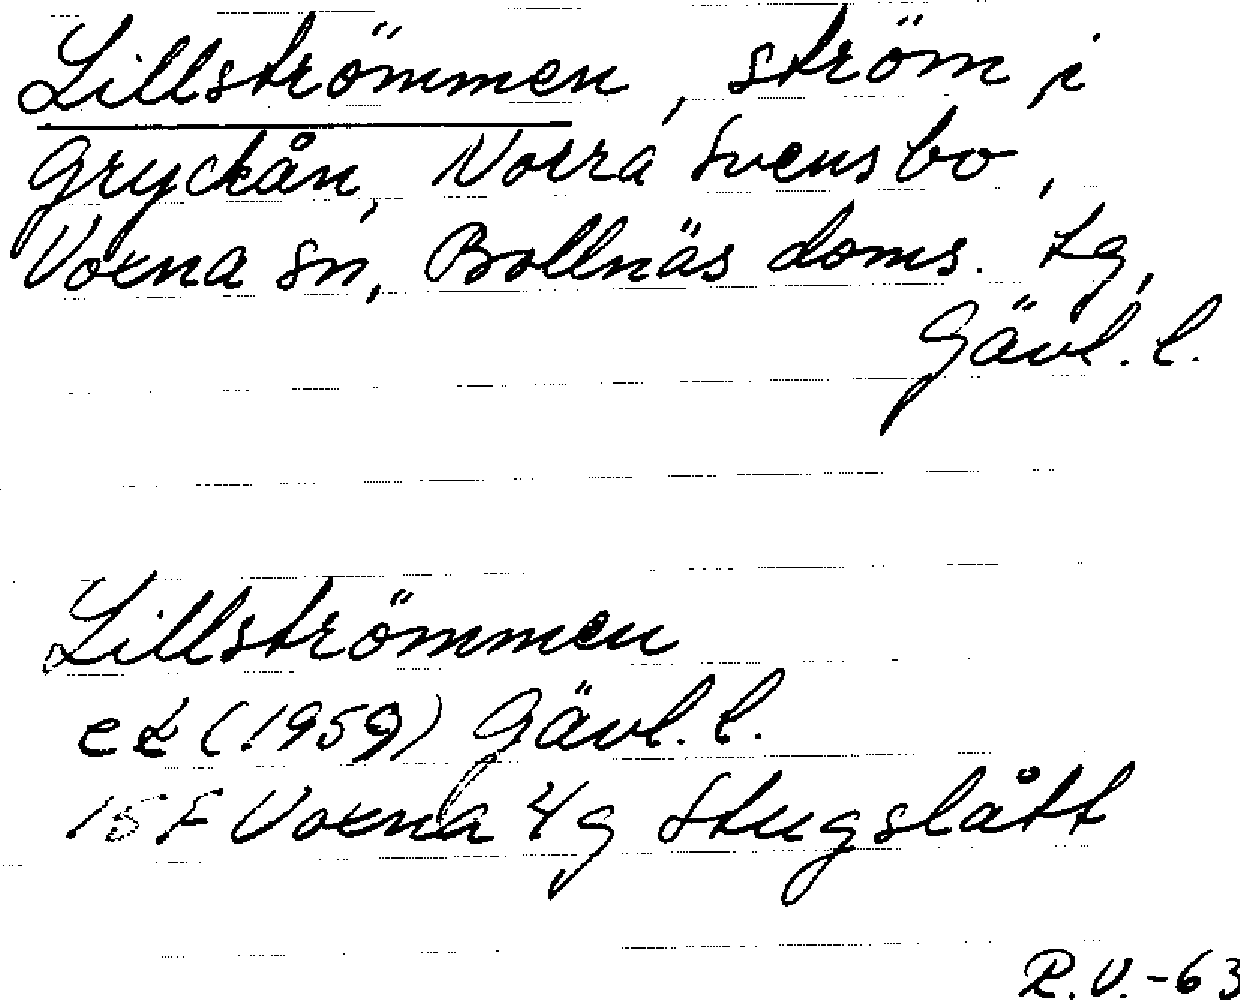 Lillströmmen, ström i
Gryckån, Norra Svensbo,
Voxna sn, Bollnäs doms. tg,
Gävl. l.
Lillströmmen
ek (1959) Gävl. l.
15 F Voxna 4g Stugslått
R.V.-63